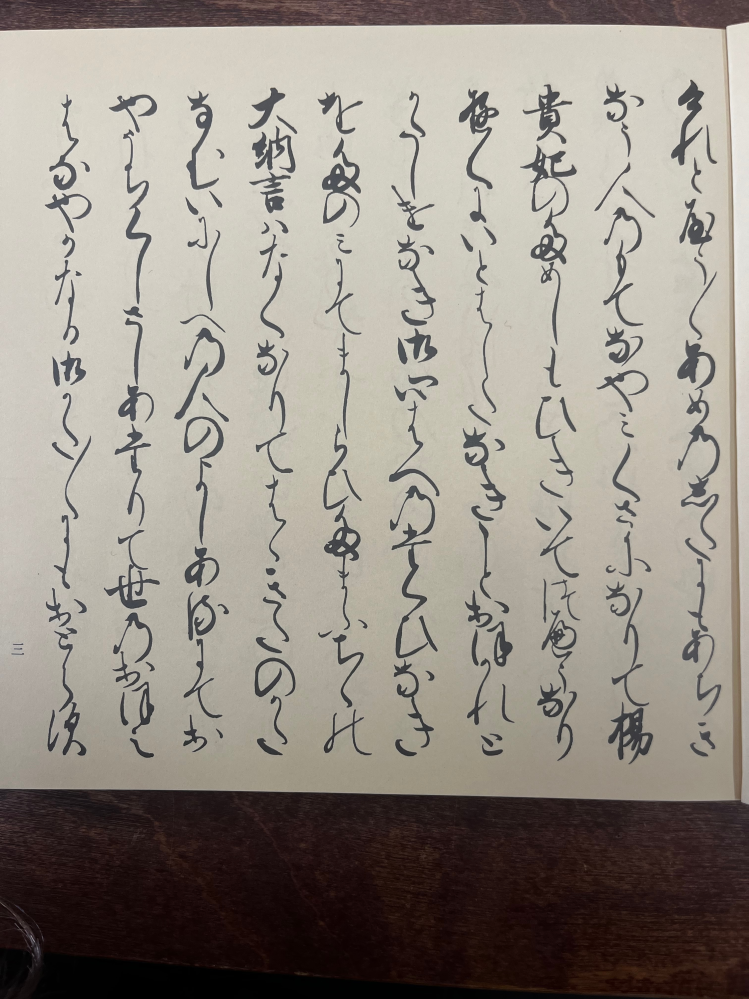 けれとやう〱あめのしたにもあちき
なう人のもてなやみくさになりて楊
貴妃のためしもひきいてつへうなり
ゆくにいとはしたなきことおほかれと
かたしけなき御心はへのたくひなき
をたのみにてましらひたまふちゝの
大納言はなくなりてはゝきたのかた
なむいにしへの人のよしあるにてお
やうちくしさしあたりて世のおほえ
はなやかなる御かた〱にもおとらす
三